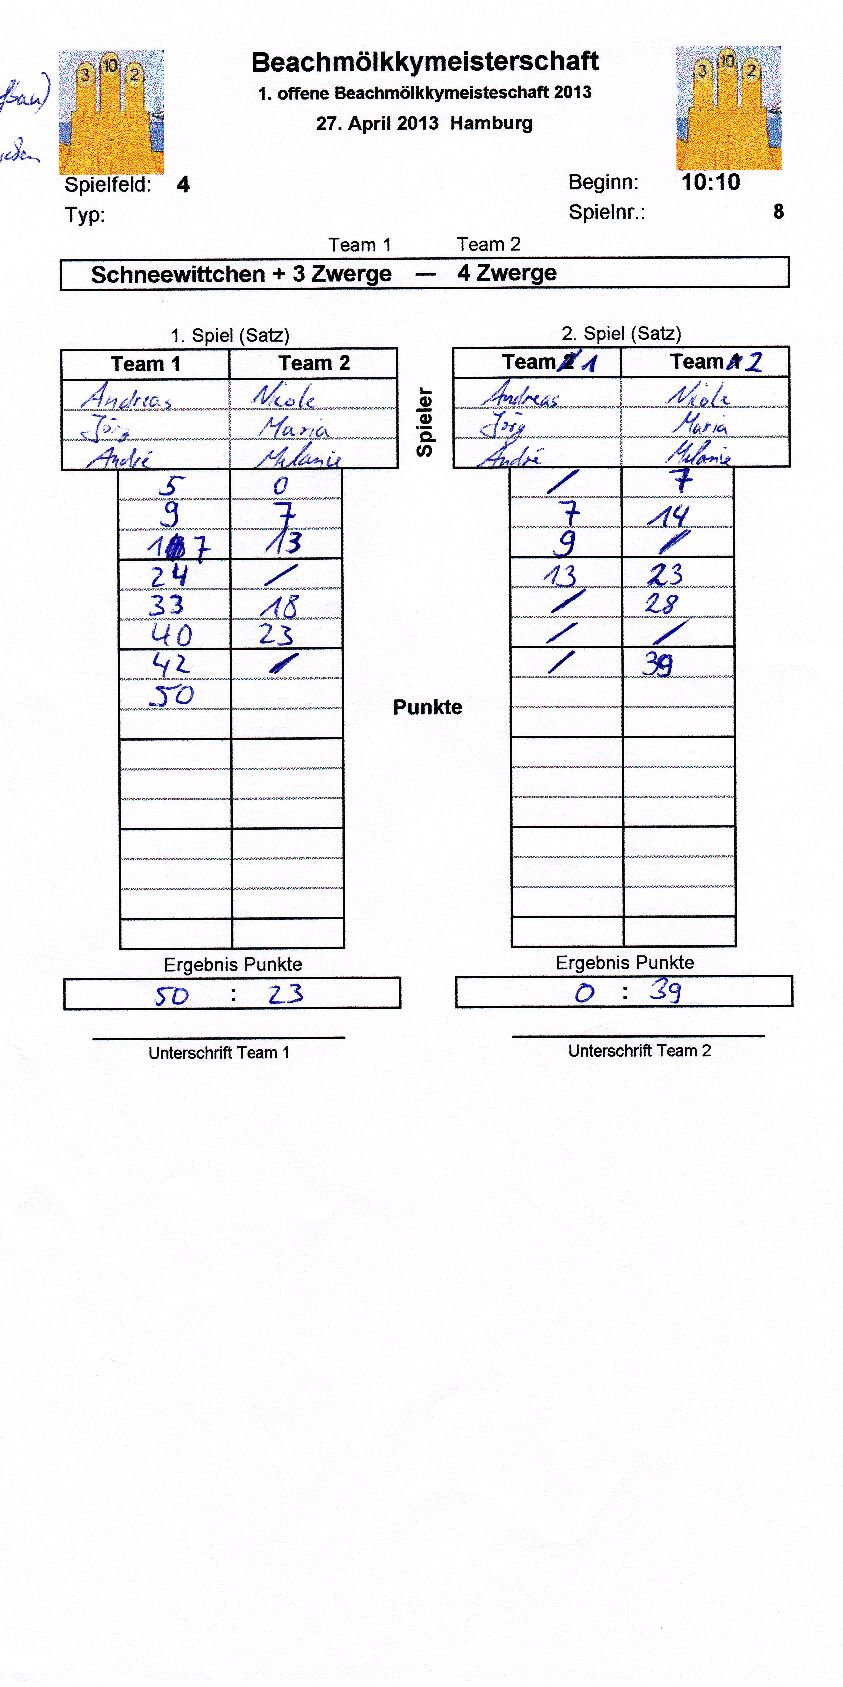 3 10 2
3 10 2
Beachmölkkymeisterschaft
1. offene Beachmölkkymeisteschaft 2013
27. April 2013 Hamburg
Spielfeld: 4
Beginn: 10:10
Typ:
Spielnr.: 8
Team 1 Team 2
Schneewittchen + 3 Zwerge — 4 Zwerge
1. Spiel (Satz)
Team 1 Team 2
Andreas Nicole
Jörg Maria
André Melanie
5 0
9 7
17 13
24 /
33 18
40 23
42 /
50
Ergebnis Punkte
50 : 23
Unterschrift Team 1
Spieler
Punkte
2. Spiel (Satz)
Team 1 Team 2
Andreas Nicole
Jörg Maria
André Melanie
/ 7
7 14
9 /
13 23
/ 28
/ /
/ 39
Ergebnis Punkte
0 : 39
Unterschrift Team 2